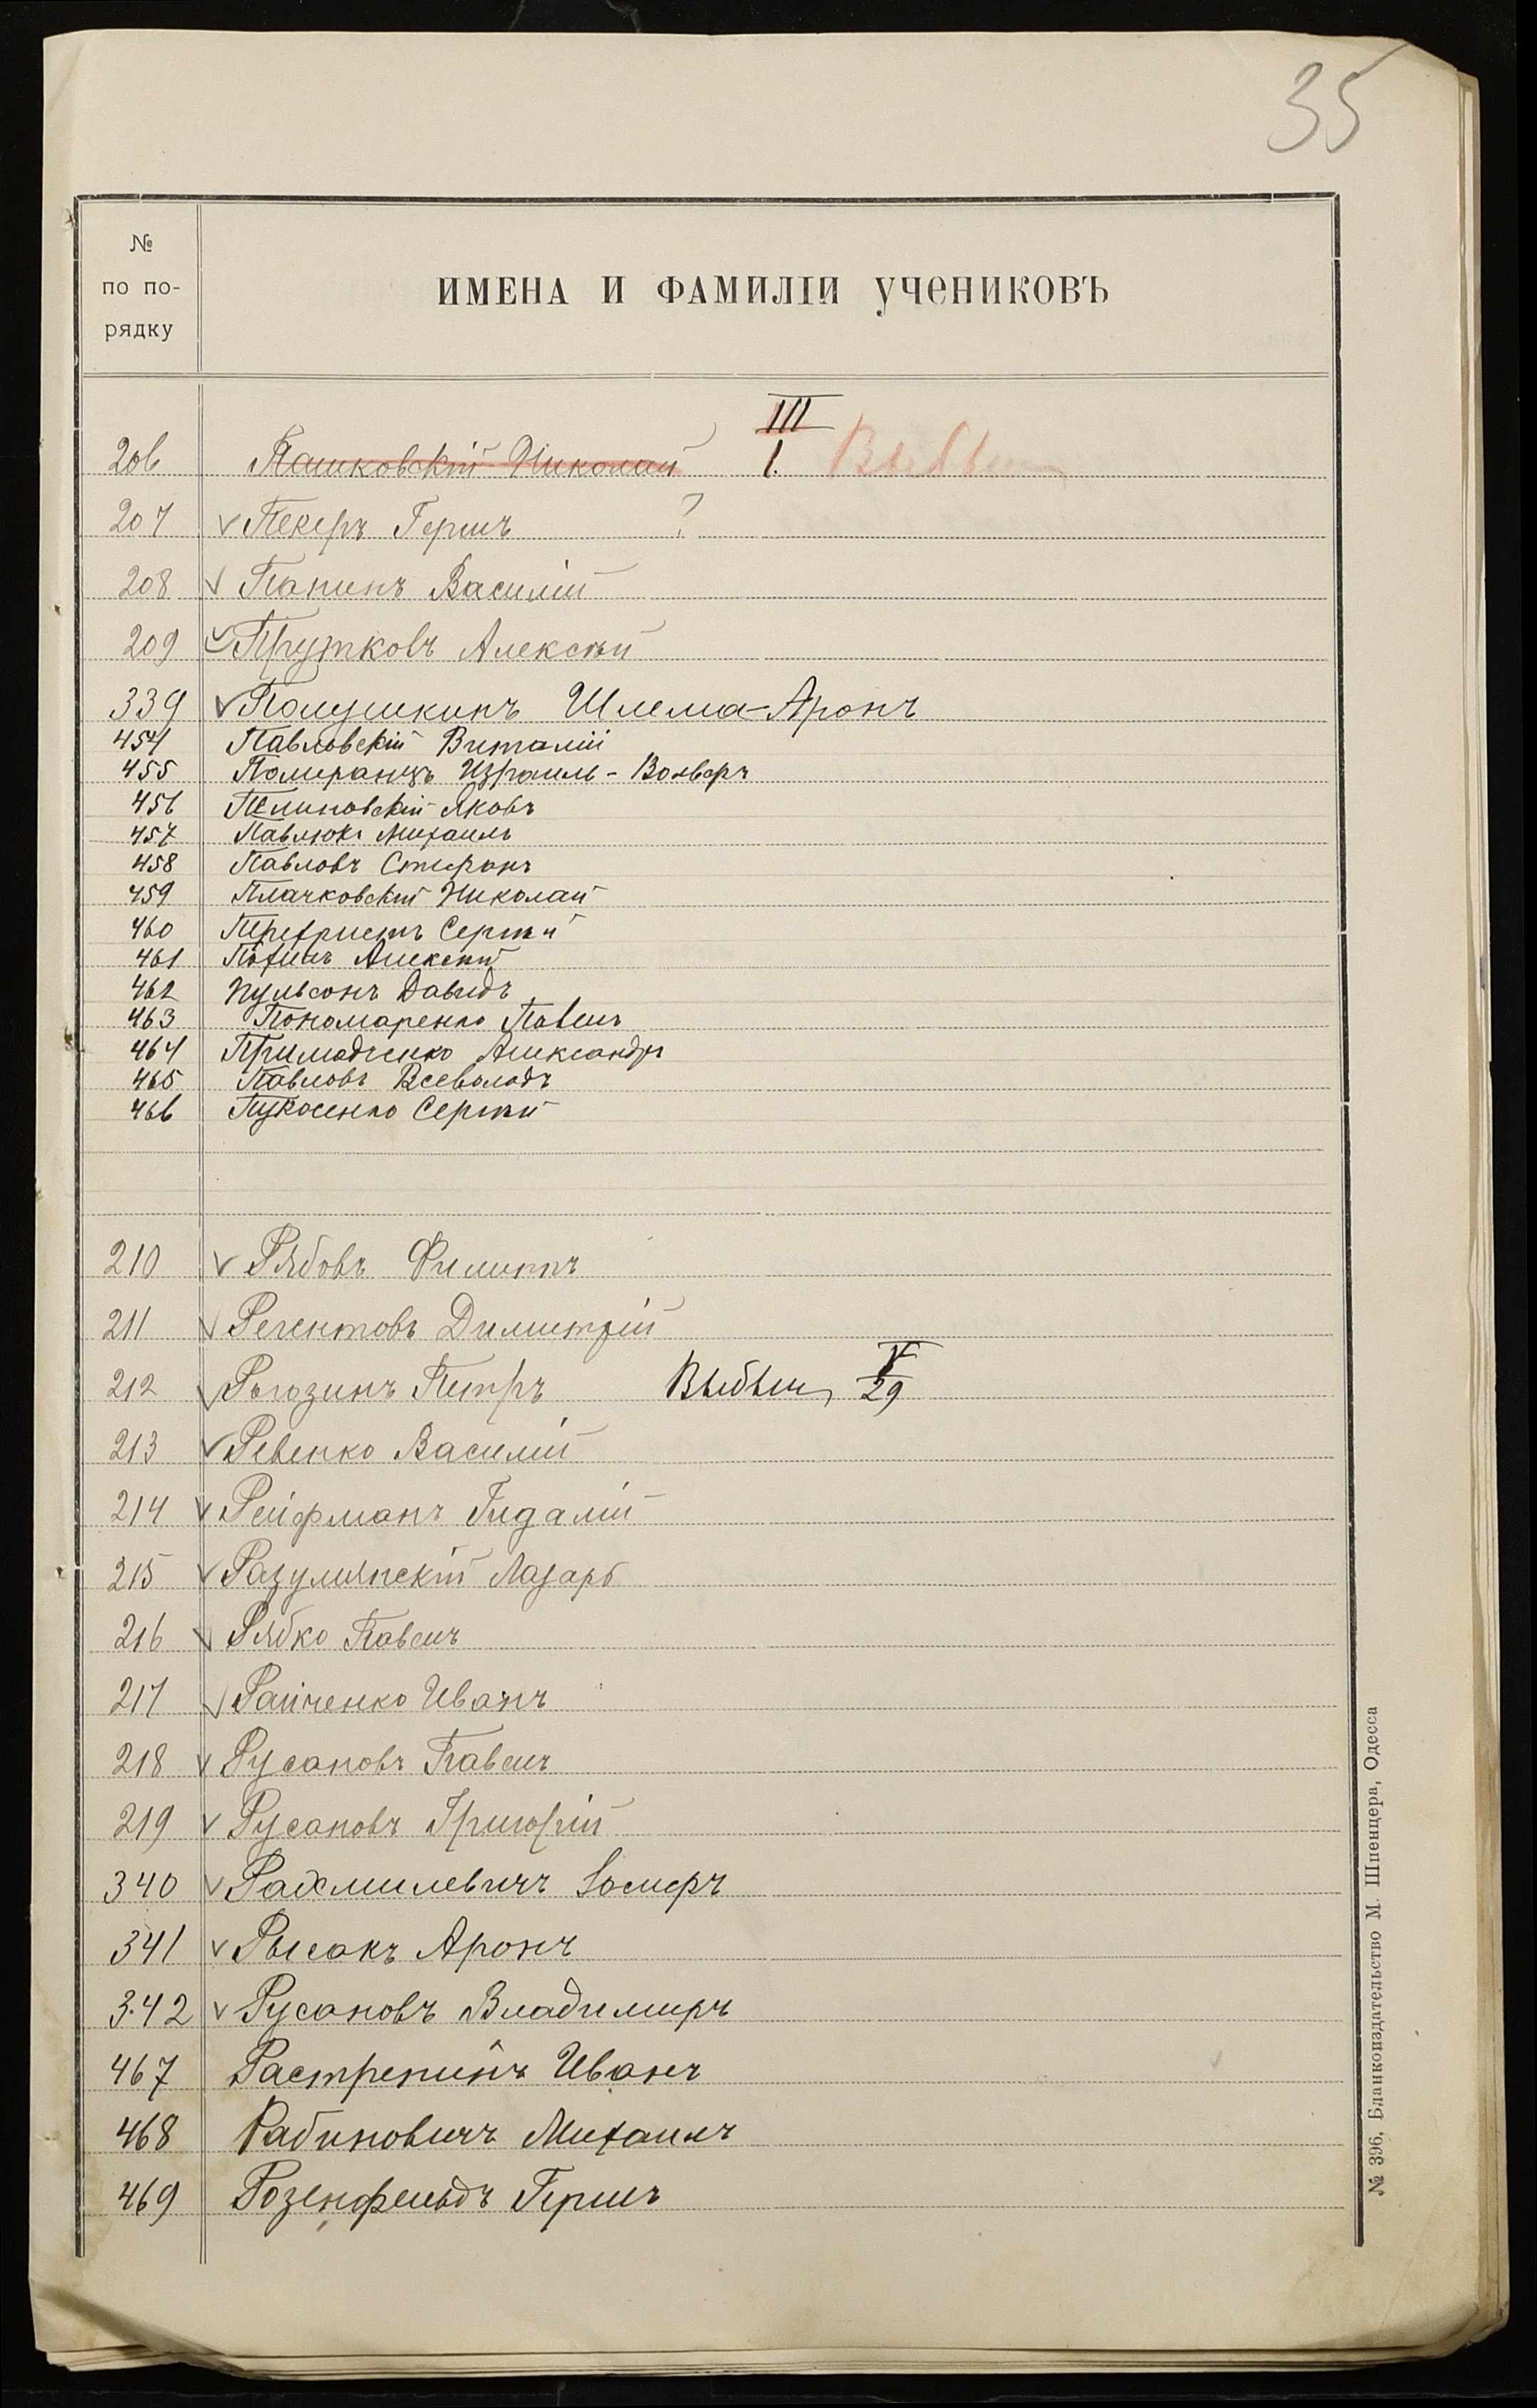 35
№
по по-
рядку
ИМЕНА И ФАМИЛІИ учениковъ
III
206 Пашковскій Николай 1. Выбылъ
207 Пекеръ Гершъ ?
208 Папинъ Василій
209 Прутковъ Алексѣй
339 Полушкинъ Шлема-Аронъ
454 Павловскій Виталій
455 Померанцъ Израиль-
456 Пелиновскій Яковъ
457 Павлюкъ Михаилъ
458 Павловъ Степанъ
459 Плачковскій Николай
460 Сергѣй
461 Алексѣй
462 Пульсонъ Давидъ
463 Пономаренко Павелъ
464 Александръ
465 Павловъ Всеволодъ
466 Пукосенко Сергѣй
210 Рябовъ Филиппъ
211 Регентовъ Димитрій
V
212 Рогозинъ Петръ Выбылъ 29
213 Ревенко Василій
214 Рейфманъ Гидалій
215 Разумянскій Лазарь
216 Рябко Павелъ
217 Райченко Иванъ
218 Русановъ Павелъ
219 Русановъ Григорій
340 Рахмилевичъ
341 Рысакъ Аронъ
342 Русановъ Владимиръ
467 Растрепинъ Иванъ
468 Рабиновичъ Михаилъ
469 Розенфельдъ Гершъ
№ 396, Бланкоиздательство М. Шпенцера, Одесса